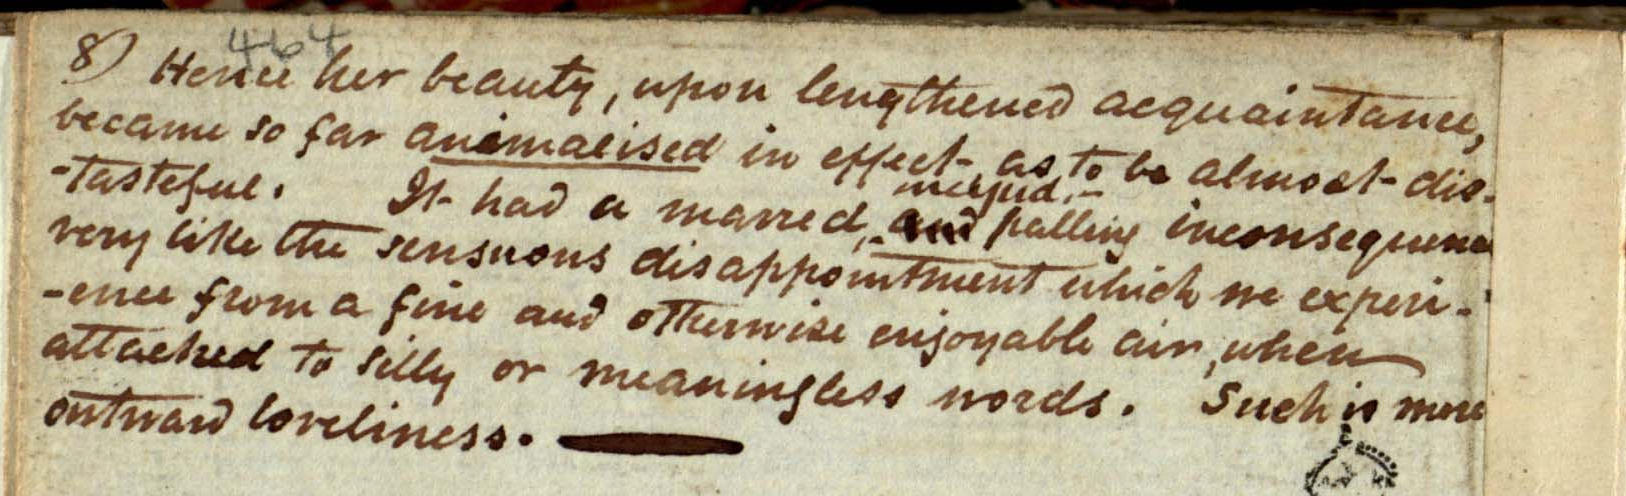 464
8) Hence her beauty, upon lengthened acquaintance,
became so far animalised in effect as to be almost dis-
-tasteful. It had a marred, insipid, and palling inconsequence
very like the sensuous disappointment which we experi-
-ence from a fine and otherwise enjoyable air, when
attached to silly or meaningless words. Such is mere
outward loveliness.